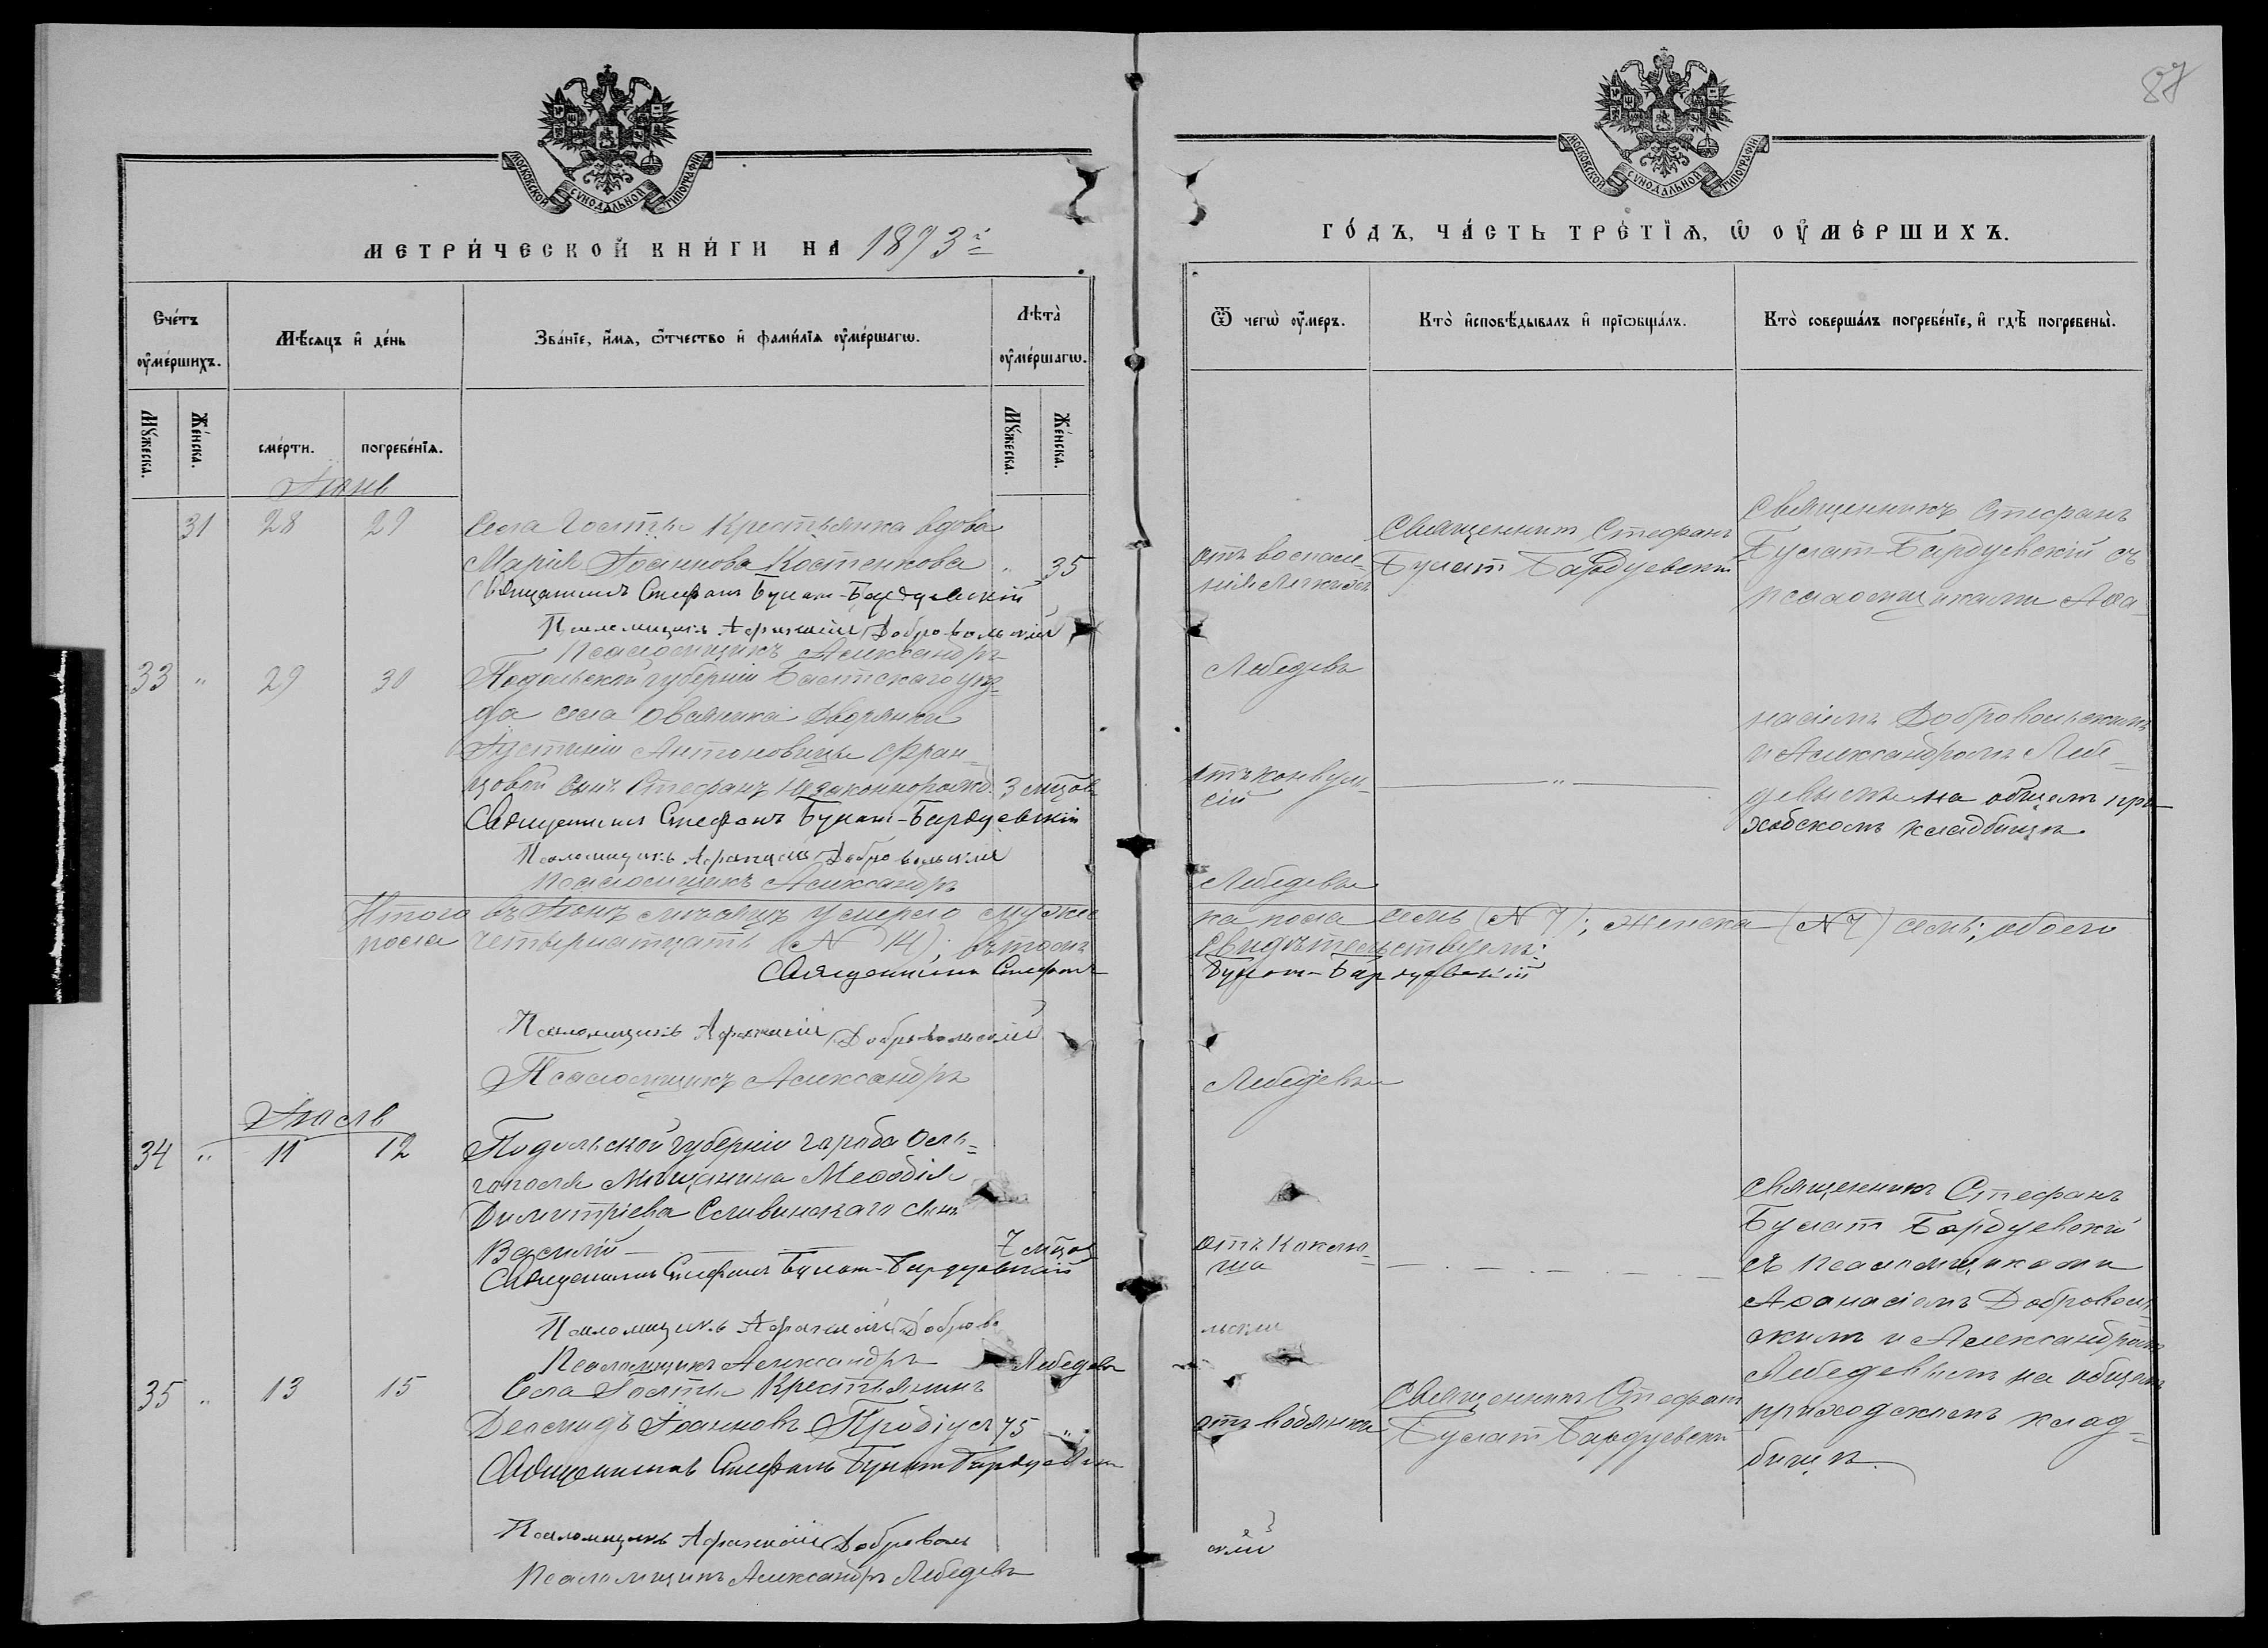 87
МОСКОВСКОЙ СУНОДАЛЬНОЙ ТИПОГРАФІИ
МОСКОВСКОЙ СУНОДАЛЬНОЙ ТИПОГРАФІИ
МЕТРИ́ЧЕСКОЙ КНИ́ГИ НА 1893 г.
ГО́ДЪ, ЧА́СТЬ ТРЕ́ТІѦ, Ѡ ОУМЕ́РШИХЪ.
Сче́тъ оуме́ршихъ.
Мѣ́сѧцъ и де́нь
Зва́нїе, и́мѧ, ѻ́тчество и фами́лїѧ оуме́ршагѡ.
Лѣта̀ оуме́ршагѡ.
Ѿ чегѡ̀ оу́меръ.
Кто̀ исповѣ́дывалъ и прїѡбща́лъ.
Кто̀ соверша́лъ погребе́нїе, и гдѣ̀ погребены̀.
Мꙋ́жеска.
Же́нска.
сме́рти.
погребе́нїѧ.
Мꙋ́жеска.
Же́нска.
Іюнь
31 28 29 Села Гостъи Крестьянка вдова
Марія Іоаннова Костенкова " 35
Священникъ Стефанъ Булат-Бардуевскій
Псаломщикъ Афанасій Добровольскій
Псаломщикъ Александръ Лебедевъ
отъ воспале-
нія легкихъ
Священникъ Стефанъ
Булат Бардуевскій
Священникъ Стефанъ
Булат-Бардуевскій съ
псаломщиками Аѳа-
насіемъ Добровольскимъ
и Александромъ Лебе-
девымъ на общемъ при-
ходскомъ кладбищѣ.
33 " 29 30 Подольской губерніи Балтскаго уѣз-
да села Дворянки
Іустиніи Антоновицы Фран-
цовой сынъ Стефанъ незаконнорожд. 3 мѣцов
Священникъ Стефанъ Булат-Бардуевскій
Псаломщикъ Афанасій Добровольскій
Псаломщикъ Александръ Лебедевъ
отъ конвуль-
сій
"
Итого въ Іюнѣ мѣсяцѣ умерло мужес-
ка пола семь (N 7); женска (N 7) семь; обоего
пола четырнатцать (N 14); въ томъ
свидѣтельствуемъ:
Священникъ Стефанъ Булат-Бардуевскій
Псаломщикъ Афанасій Добровольскій
Псаломщикъ Александръ Лебедевъ
Іюль
34 " 11 12 Подольской губерніи города Оль-
гополя Мѣщанина Меѳодія
Димитріева Селивинскаго сынъ
Василій 7 мѣцов
Священникъ Стефанъ Булат-Бардуевскій
Псаломщикъ Афанасій Добровольскій
Псаломщикъ Александръ Лебедевъ
отъ Коклю-
ша
Священникъ Стефанъ
Булат Бардуевскій
съ псаломщиками
Аѳанасіемъ Доброволь-
скимъ и Александромъ
Лебедевымъ на общемъ
приходскомъ клад-
бищѣ.
35 " 13 15 Села Гостъи Крестьянинъ
Іоанновъ Продіусъ 75 "
Священникъ Стефанъ Булат Бардуевскій
Псаломщикъ Афанасій Добровольскій
Псаломщикъ Александръ Лебедевъ
отъ водянки
Священникъ Стефанъ
Булат Бардуевскій